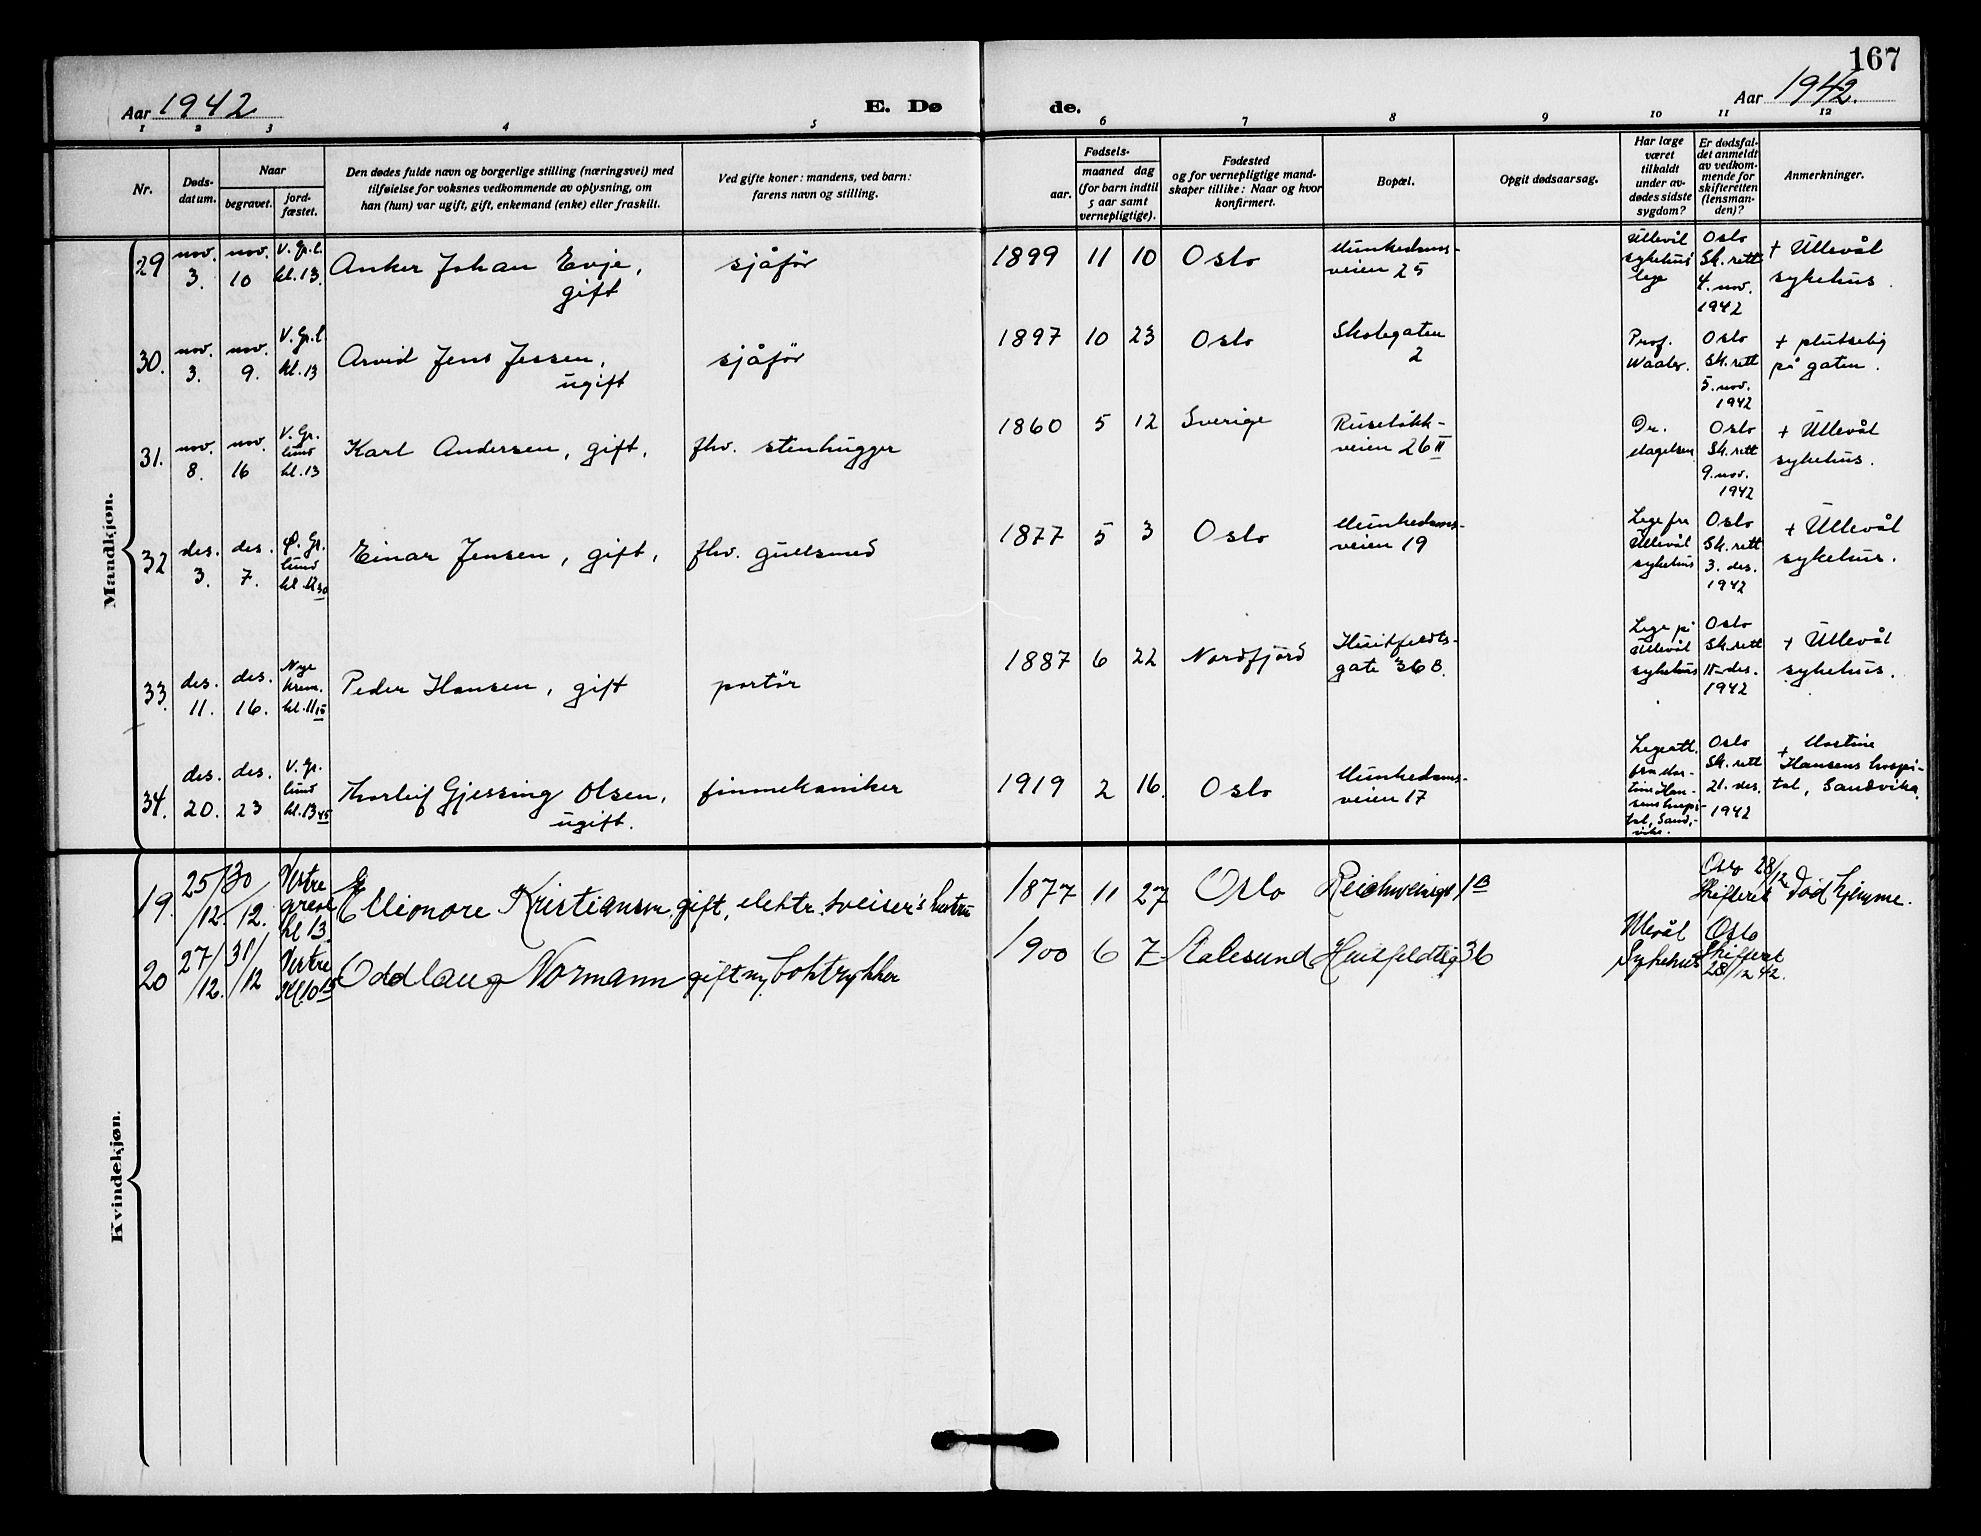 167
Aar 1942
E. Dø de.
Aar 1942.
1 2 3 4 5 6 7 8 9 10 11 12
Nr.
Døds-
datum.
Naar
begravet.
jord-
fæstet.
Den dødes fulde navn og borgerlige stilling (næringsvei) med
tilføielse for voksnes vedkommende av oplysning, om
han (hun) var ugift, gift, enkemand (enke) eller fraskilt.
Ved gifte koner: mandens, ved barn:
farens navn og stilling.
Fødsels-
aar.
maaned dag
(for barn indtil
5 aar samt
vernepligtige).
Fødested
og for vernepligtige mand-
skaper tillike: Naar og hvor
konfirmert.
Bopæl.
Opgit dødsaarsag.
Har læge
været
tilkaldt
under av-
dødes sidste
sygdom?
Er dødsfal-
det anmeldt
av vedkom-
mende for
skifteretten
(lensman-
den)?
Anmerkninger.
Mandkjøn.
29
nov.
3.
nov.
10
V. Gr. l.
kl. 13.
Anker Johan Evje,
gift
sjåfør
1899 11 10 Oslo
Munkedams-
veien 25
Ullevål
sykehus
lege
Oslo
Sk. rett
4. nov.
1942
+ Ullevål
sykehus.
30.
nov.
3.
nov.
9.
V. Gr. l.
kl. 13
Arvid Jens Jessen,
ugift
sjåfør
1897 10 23 Oslo
Skolegaten
2
Prof.
Waaler.
Oslo
Sk. rett
5. nov.
1942
+ plutselig
på gaten.
31.
nov.
8.
nov.
16
V. Gr.
lund
kl. 13
Karl Andersen, gift,
fhv. stenhugger
1860 5 12 Sverige
Ruseløkk-
veien 26 II
Dr.
Oslo
Sk. rett
9. nov.
1942
+ Ullevål
sykehus.
32
des.
3.
des.
7.
Ø. Gr.
lund
kl. 11 30
Einar Jensen, gift,
fhv. gullsmed
1877 5 3 Oslo
Munkedams-
veien 19
Lege fra
Ullevål
sykehus
Oslo
Sk. rett
3. des.
1942
+ Ullevål
sykehus.
33.
des.
11.
des.
16.
Nye
krem.
kl. 11 15
Peder Hansen, gift
portør
1887 6 22 Nordfjord
Huitfeldts-
gate 36 B.
Lege på
Ullevål
sykehus
Oslo
Sk. rett
des.
1942
+ Ullevål
sykehus.
34.
des.
20.
des.
23
V. Gr.
lund
kl. 13 45
Thorleif Gjessing Olsen,
ugift.
finmekaniker
1919 2 16. Oslo
Munkedams-
veien 17
Legeatt.
fra Mar-
tine Han-
sens hospi-
tal, Sand-
vika.
Oslo
Sk. rett
21. des.
1942
+ Martine
Hansens hospi-
tal, Sandvika.
Kvindekjøn.
19.
25/12.
30/12.
Vestre
gravl.
kl 13.
Ellionore Kristiansen gift, elektr. sveiser's hustru
1877 11 27 Oslo Reichweinsgt 1 B
Oslo 28/12
Skifteret
død hjemme.
20
27/12.
31/12
Vestre
Kl 10 15
Oddlaug Normann gift m. boktrykker
1900 6 7 Aalesund Huitfeldtsg 36
Ulevål
Sykehus
Oslo
Skifteret
28/12 42.